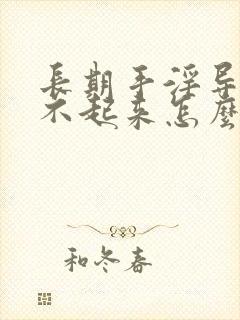 長期手淫导
不起来怎麼
和冬春